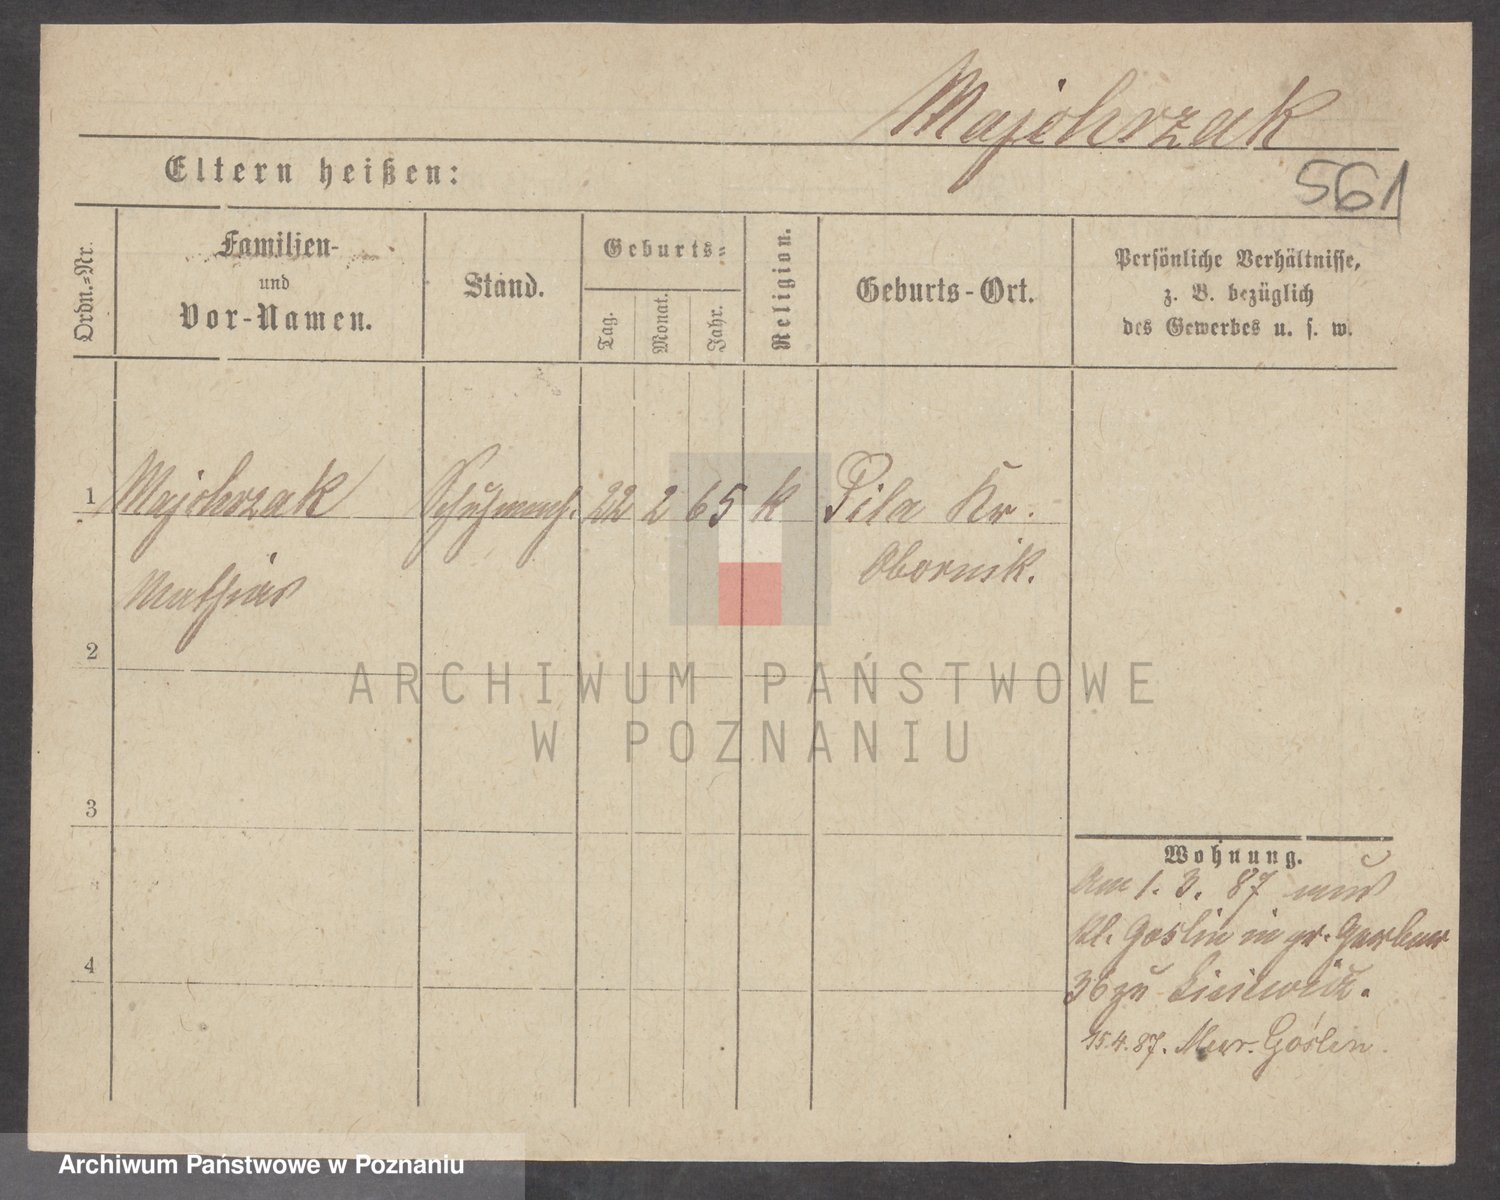 Majchrzak
561
Eltern heißen:
Ordn.-Nr.
Familien-
und
Vor-Namen.
Stand.
Geburts-
Tag.
Monat.
Jahr.
Religion.
Geburts-Ort.
Persönliche Verhältnisse,
z. B. bezüglich
des Gewerbes u. s. w.
1 Majchrzak Schuhmach. 22 2 65 k Pila Kr.
Mathias Obornik.
2
3
4
Wohnung.
Am 1. 3. 87 aus
Kl. Goslin in gr. Gerber
36 zu
15.4.87. Mur. Goślin.
ARCHIWUM PAŃSTWOWE
W POZNANIU
Archiwum Państwowe w Poznaniu